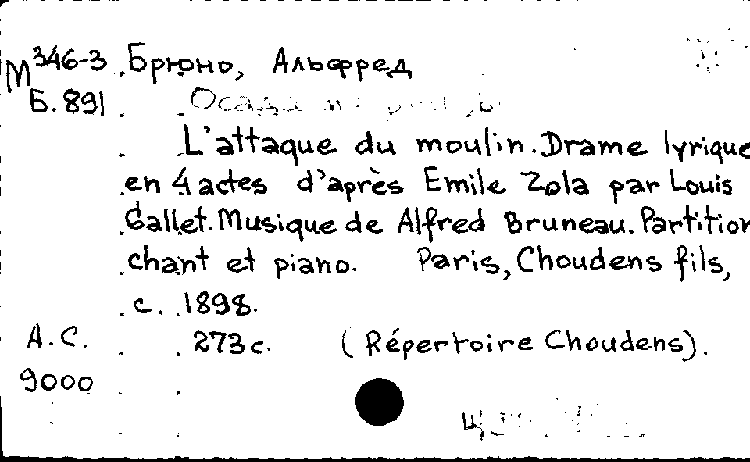 М 346-3 Брюно, Альфред
Б. 891 Осада
L'attaque du moulin. Drame lyrique
en 4 actes d'après Emile Zola par Louis
Gallet. Musique de Alfred Bruneau. Partition
chant et piano. Paris, Choudens fils,
c. 1898.
А.С. 273 с. (Répertoire Choudens).
9000